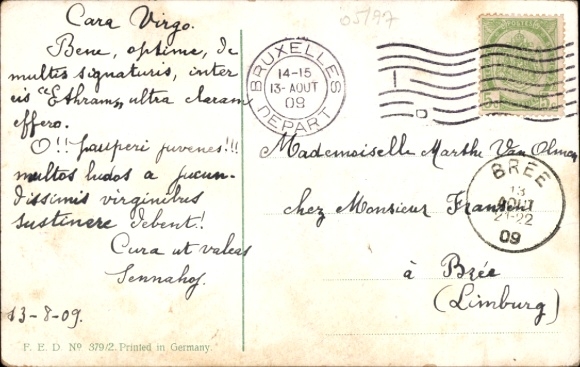 05/97
Cara Virgo.
Bene, optime, de
multis signaturis, inter
eis "Ethram, ultra claram
effero.
O!! pauperi juvenes!!!
multos ludos a jucun-
dissimis virginibus
sustinere debent!
Cura ut valeas
Sennahoj.
13-8-09.
F. E. D Nº 379/2. Printed in Germany.
BRUXELLES
14-15
13-AOUT
09
DEPART
POSTES
Mademoiselle Marthe Van Olmen
chez Monsieur Fransen
à Brée
(Limburg)
BRÉE
13
AOUT
21-22
09